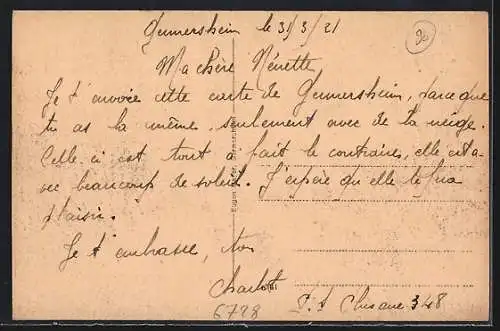 Germersheim le 31/3/21
30
Ma chère Nénette
Je t'envoie cette carte de Germersheim, parce que
tu as la même seulement avec de la neige.
Celle ci est tout a fait le contraire, elle est a-
vec beaucoup de soleil. J'espère qu'elle te fera
plaisir.
Je t'embrasse, ton
Charlot
6728
348